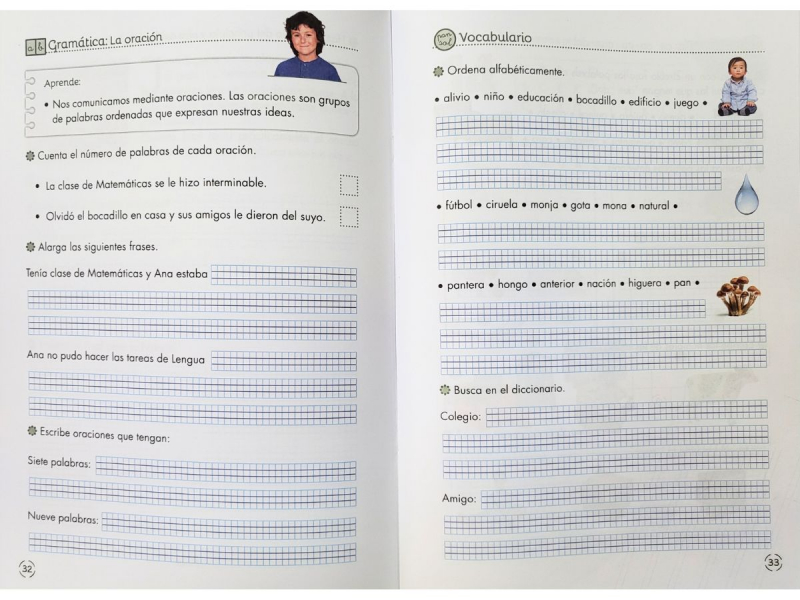 a b Gramática: La oración
Aprende:
• Nos comunicamos mediante oraciones. Las oraciones son grupos
de palabras ordenadas que expresan nuestras ideas.
Cuenta el número de palabras de cada oración.
• La clase de Matemáticas se le hizo interminable.
• Olvidó el bocadillo en casa y sus amigos le dieron del suyo.
Alarga las siguientes frases.
Tenía clase de Matemáticas y Ana estaba
Ana no pudo hacer las tareas de Lengua
Escribe oraciones que tengan:
Siete palabras:
Nueve palabras:
32
Vocabulario
Ordena alfabéticamente.
• alivio • niño • educación • bocadillo • edificio • juego •
• fútbol • ciruela • monja • gota • mona • natural •
• pantera • hongo • anterior • nación • higuera • pan •
Busca en el diccionario.
Colegio:
Amigo:
33